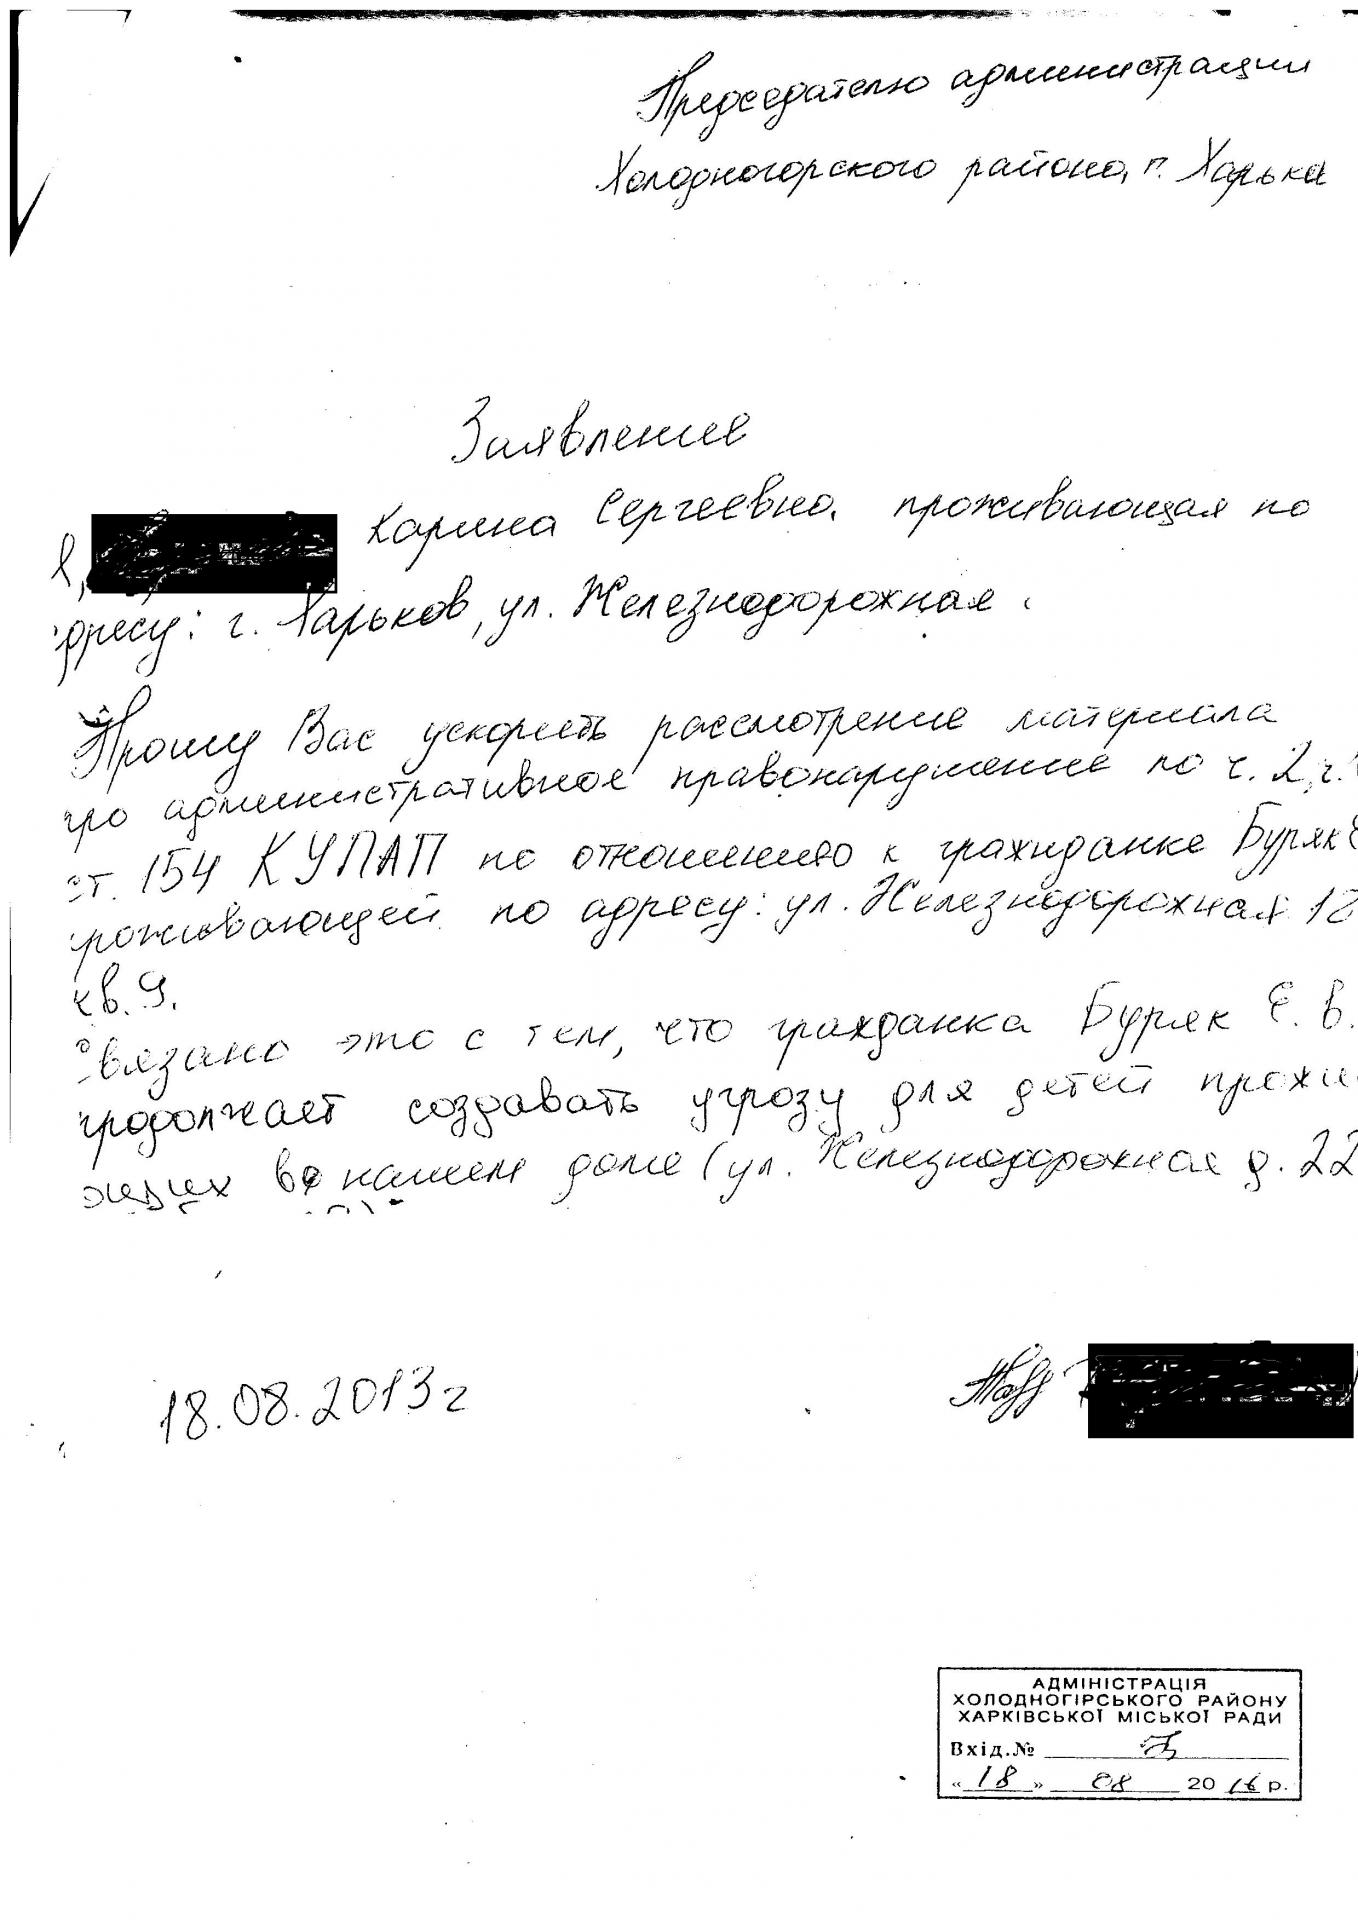 Председателю администрации
Холодногорского района, г. Харька
Заявление
Карина Сергеевна, проживающая по
дресу: г. Харьков, ул. Железнодорожная
Прошу Вас ускорить рассмотрение материала
про административное правонарушение по ч. 2, ч.
ст. 154 КУПАП по отношению к гражданке Буряк Е
роживающей по адресу: ул. Железнодорожная 18
кв. 9.
Связано это с тем, что гражданка Буряк Е. В.
продолжает создавать угрозу для детей прожи
во нашем доме (ул. Железнодорожная д. 22
18.08.2013 г
АДМІНІСТРАЦІЯ
ХОЛОДНОГІРСЬКОГО РАЙОНУ
ХАРКІВСЬКОЇ МІСЬКОЇ РАДИ
Вхід.№
« 18 » 08 20 16 р.